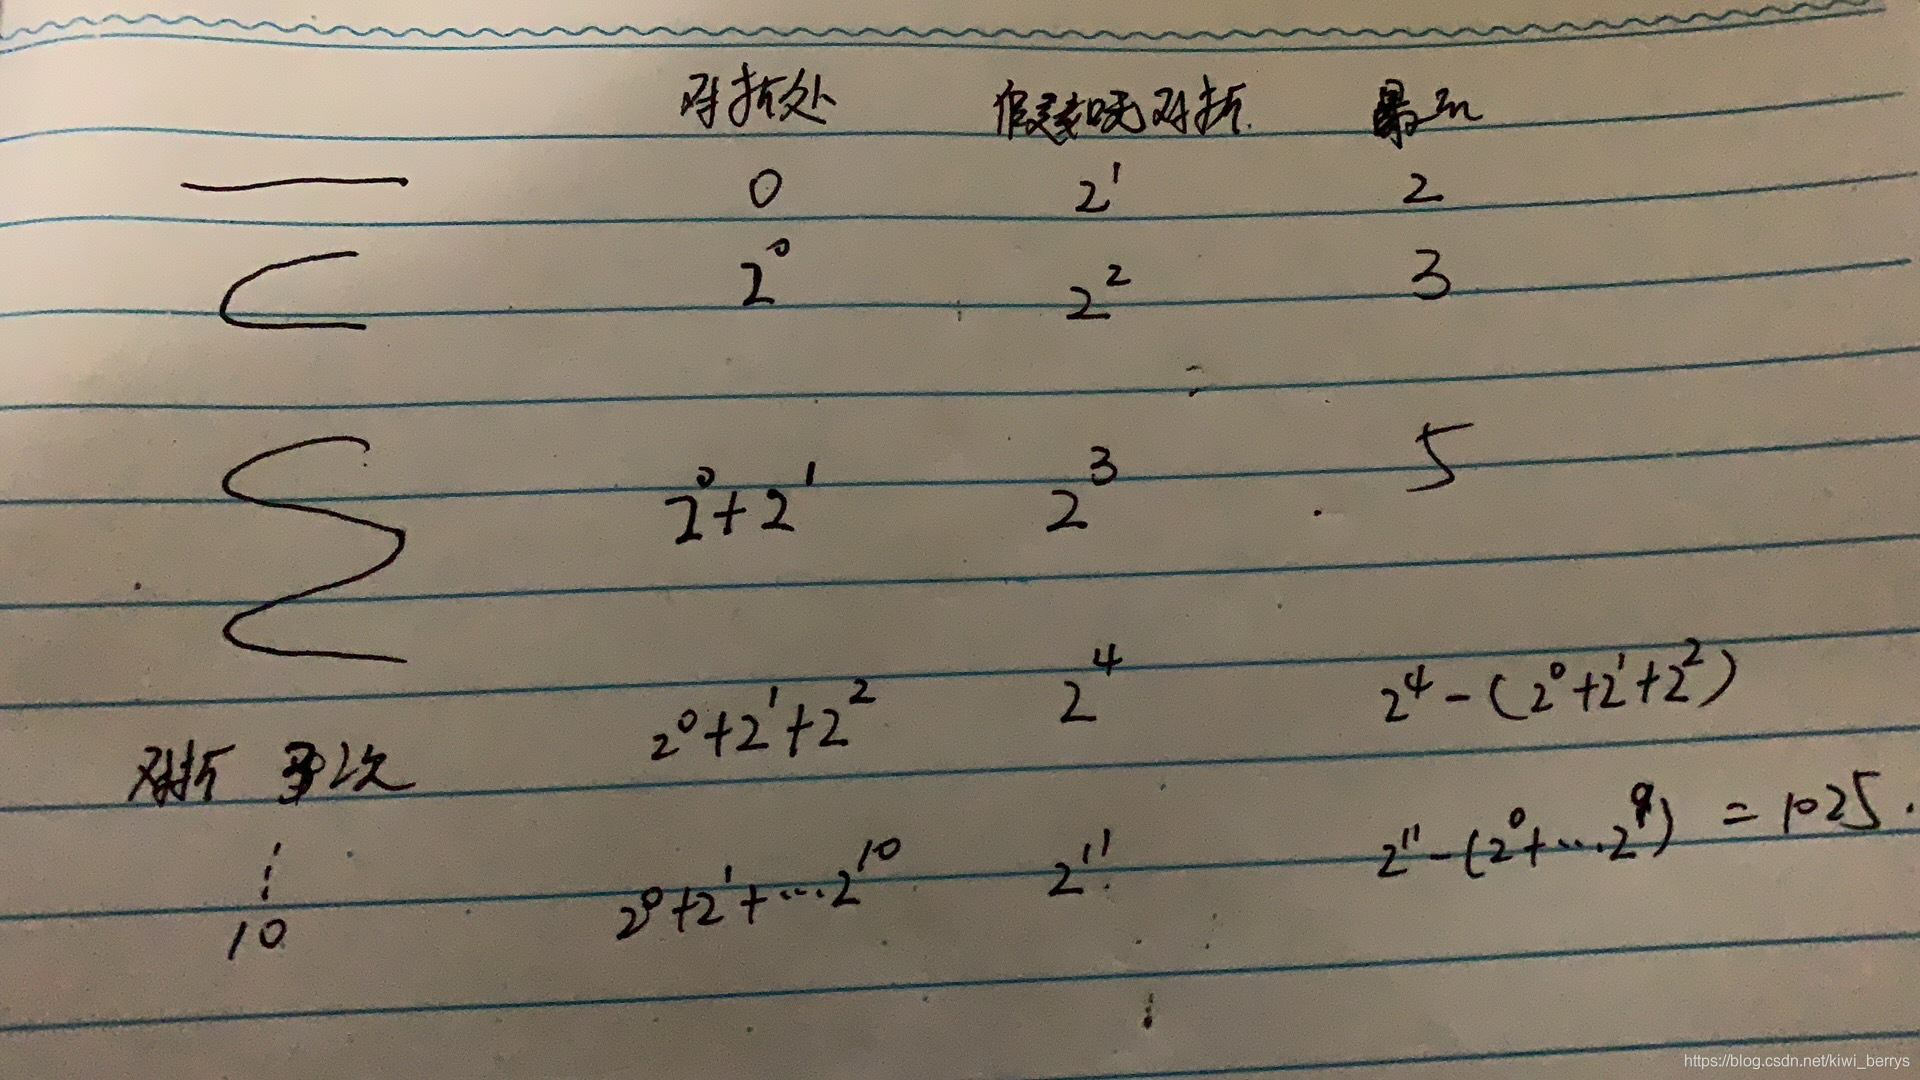 对折处 假设无对折 最
0 2¹ 2
2⁰ 2² 3
2⁰+2¹ 2³ 5
2⁰+2¹+2² 2⁴ 2⁴-(2⁰+2¹+2²)
对折 次
2⁰+2¹+…2¹⁰ 2¹¹ 2¹¹-(2⁰+…2⁹) = 1025.
10
https://blog.csdn.net/kiwi_berrys